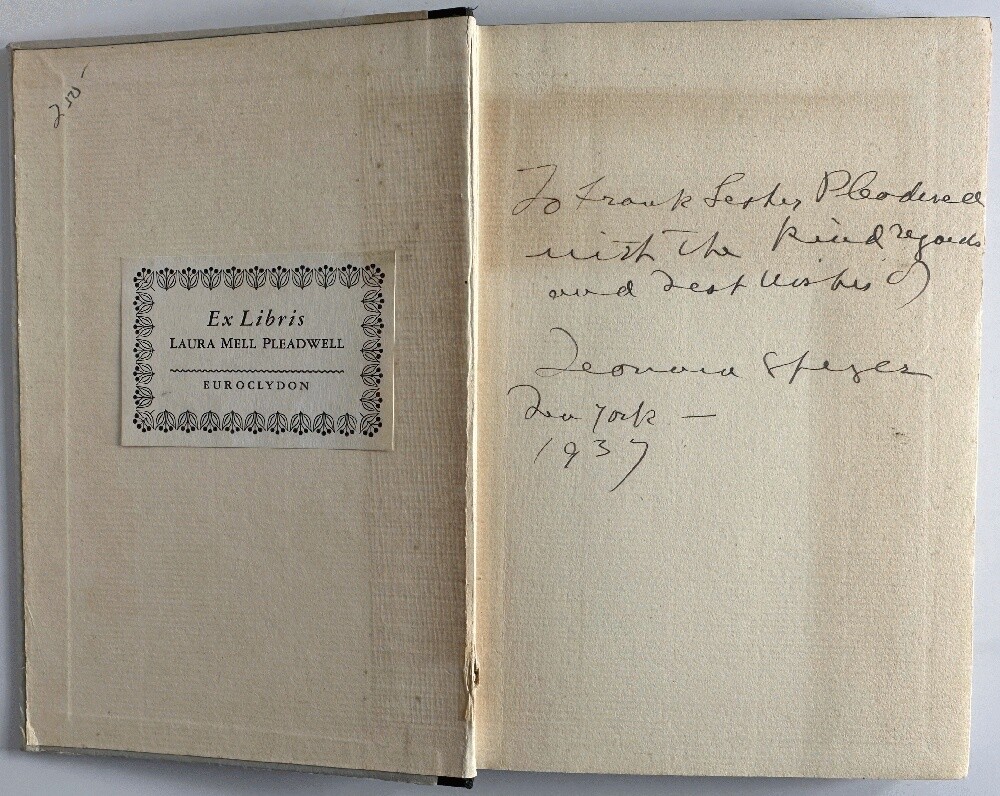 250
Ex Libris
LAURA MELL PLEADWELL
EUROCLYDON
To Frank Lester Pleadwell
with the kind regards
and best wishes of
Leonora Speyer
New York —
1937